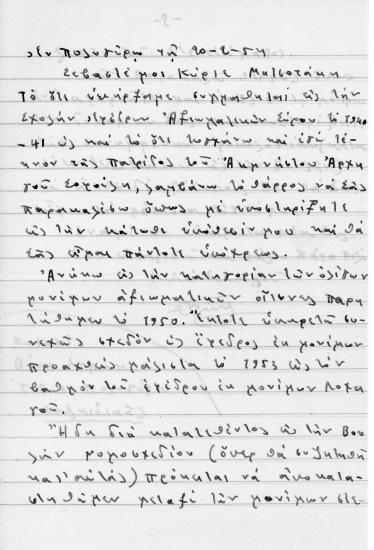 -2-
Ἐν Πολυγύρῳ τῇ 20-2-54
Σεβαστέ μοι Κύριε Μητσοτάκη
Τὸ ὅτι ὑπήρξαμε συμμαθηταὶ εἰς τὴν
Σχολὴν Ἐφέδρων Ἀξιωματικῶν Σύρου τὸ 1940
-41 ὡς καὶ τὸ ὅτι τυγχάνω καὶ ἐγὼ τέ-
κνον τῆς Πατρίδος τοῦ Ἀειμνήστου Ἀρχη
γοῦ Σοφούλη, λαμβάνω τὸ θάρρος νὰ σᾶς
παρακαλέσω ὅπως μὲ ὑποστηρίξητε
εἰς τὴν κάτωθι ὑπόθεσίν μου καὶ θὰ
σᾶς εἶμαι πάντοτε ὑπόχρεως.
Ἀνήκω εἰς τὴν κατηγορίαν τῶν ὀλίγων
μονίμων ἀξιωματικῶν οἵτινες παρη
τήθημεν τὸ 1950. Ἔκτοτε ὑπηρετῶ συ-
νεχῶς σχεδὸν ὡς ἔφεδρος ἐκ μονίμων
προαχθεὶς μάλιστα τὸ 1953 εἰς τὸν
βαθμὸν τοῦ ἐφέδρου ἐκ μονίμων Λοχα
γοῦ.
Ἤδη διὰ κατατεθέντος εἰς τὴν Βου
λὴν νομοσχεδίου (ὅπερ θὰ συζητηθῇ
κατ' αὐτὰς) πρόκειται νὰ ἀποκατα-
στηθῶμεν μεταξὺ τῶν μονίμων στε-